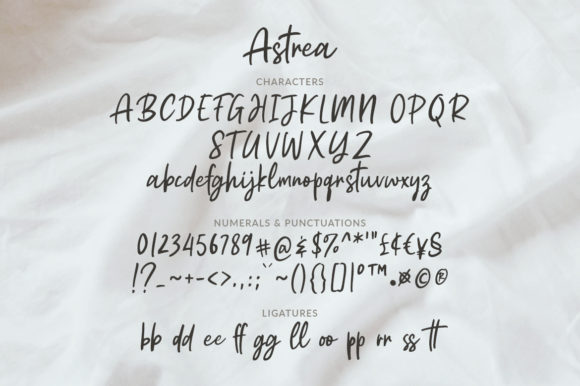 Astrea
CHARACTERS
ABCDEFGHIJKLMN OPQR
STUVWXYZ
abcdefghijklmnopqrstuvwxyz
NUMERALS & PUNCTUATIONS
0123456789#@&$%^*'"£¢€¥§
!?_~+-<>.,:;¨`~(){}[]|°™•¤©®
LIGATURES
bb dd ee ff gg ll oo pp rr ss tt